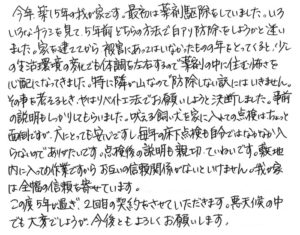 今年築15年の我が家です。最初は薬剤駆除をしていました。いろ
いろなチラシを見て、5年前どちらの方法で白アリ防除をしようかと迷い
ました。家を建ててから被害にあってはいなかったものの年もとってくると、少し
の生活環境の劣でも体調を左右するので薬剤の中に住む怖さを
心配になってきました。特に隣が山なので防除しない訳にはいきません。
その事を考えるとき、やはりベイト工法でお願いしようと決断しました。事前
の説明もしっかりしてもらいました。吠える飼い犬を家に入れての点検はちょっと
面倒ですが、犬にとっても安心ですし毎年の床下点検も自分ではなかなか入
らないのでありがたいです。点検後の説明も親切、ていねいです。敷地
内に入っての作業ですからお互いの信頼関係がないといけません。我が家
は全幅の信頼を寄せています。
この度5年が過ぎ、2回目の契約をさせていただきます。異天候の中
でも大変でしょうが、今後ともよろしくお願いします。